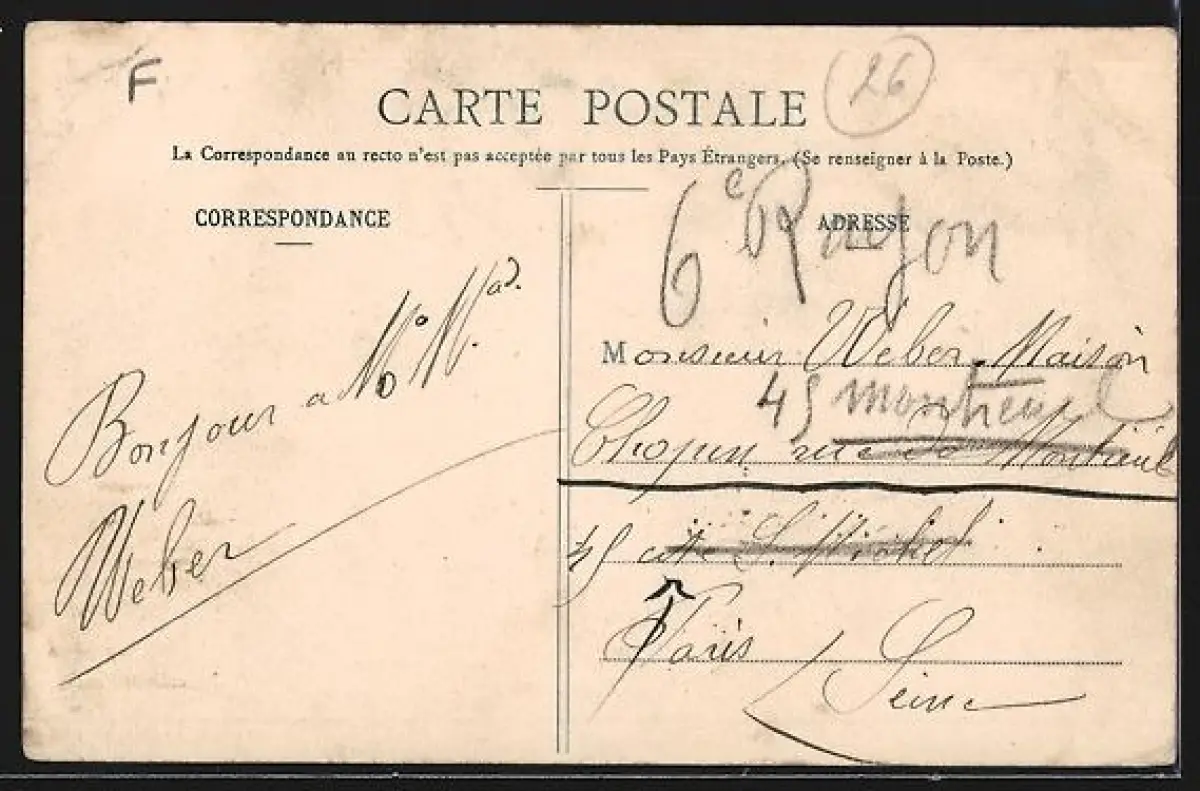 F
26
CARTE POSTALE
La Correspondance au recto n'est pas acceptée par tous les Pays Étrangers. (Se renseigner à la Poste.)
CORRESPONDANCE
Bonjour a
Weber
ADRESSE
6e Rayon
Monsieur Weber. Maison
45 montreuil
Chopin rue de Montreuil
45 cité S. Michel
Paris
Seine